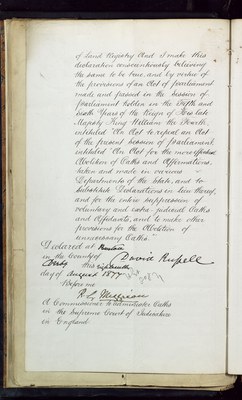 of land Registry And I make this
declaration conscientiously believing
the same to be true, and by virtue of
the provisions of an Act of parliament
made and passed in the Session of
Parliament holden in the Fifth and
Sixth Years of the Reign of His late
Majesty King William the Fourth
intituled "An Act to repeal an Act
of the present Session of parliament
intituled An Act for the more effectual
Abolition of Oaths and Affirmations,
taken and made in various
Departments of the State, and to
Substitute Declarations in lieu thereof,
and for the entire suppression of
voluntary and extra-judicial Oaths
and Affidavits, and to make other
provisions for the Abolition of
unnecessary Oaths"
Declared at
in the County of David Russell
Derby this
day of August 1877
Before me
A Commissioner to administer Oaths
in the Supreme Court of Judicature
in England